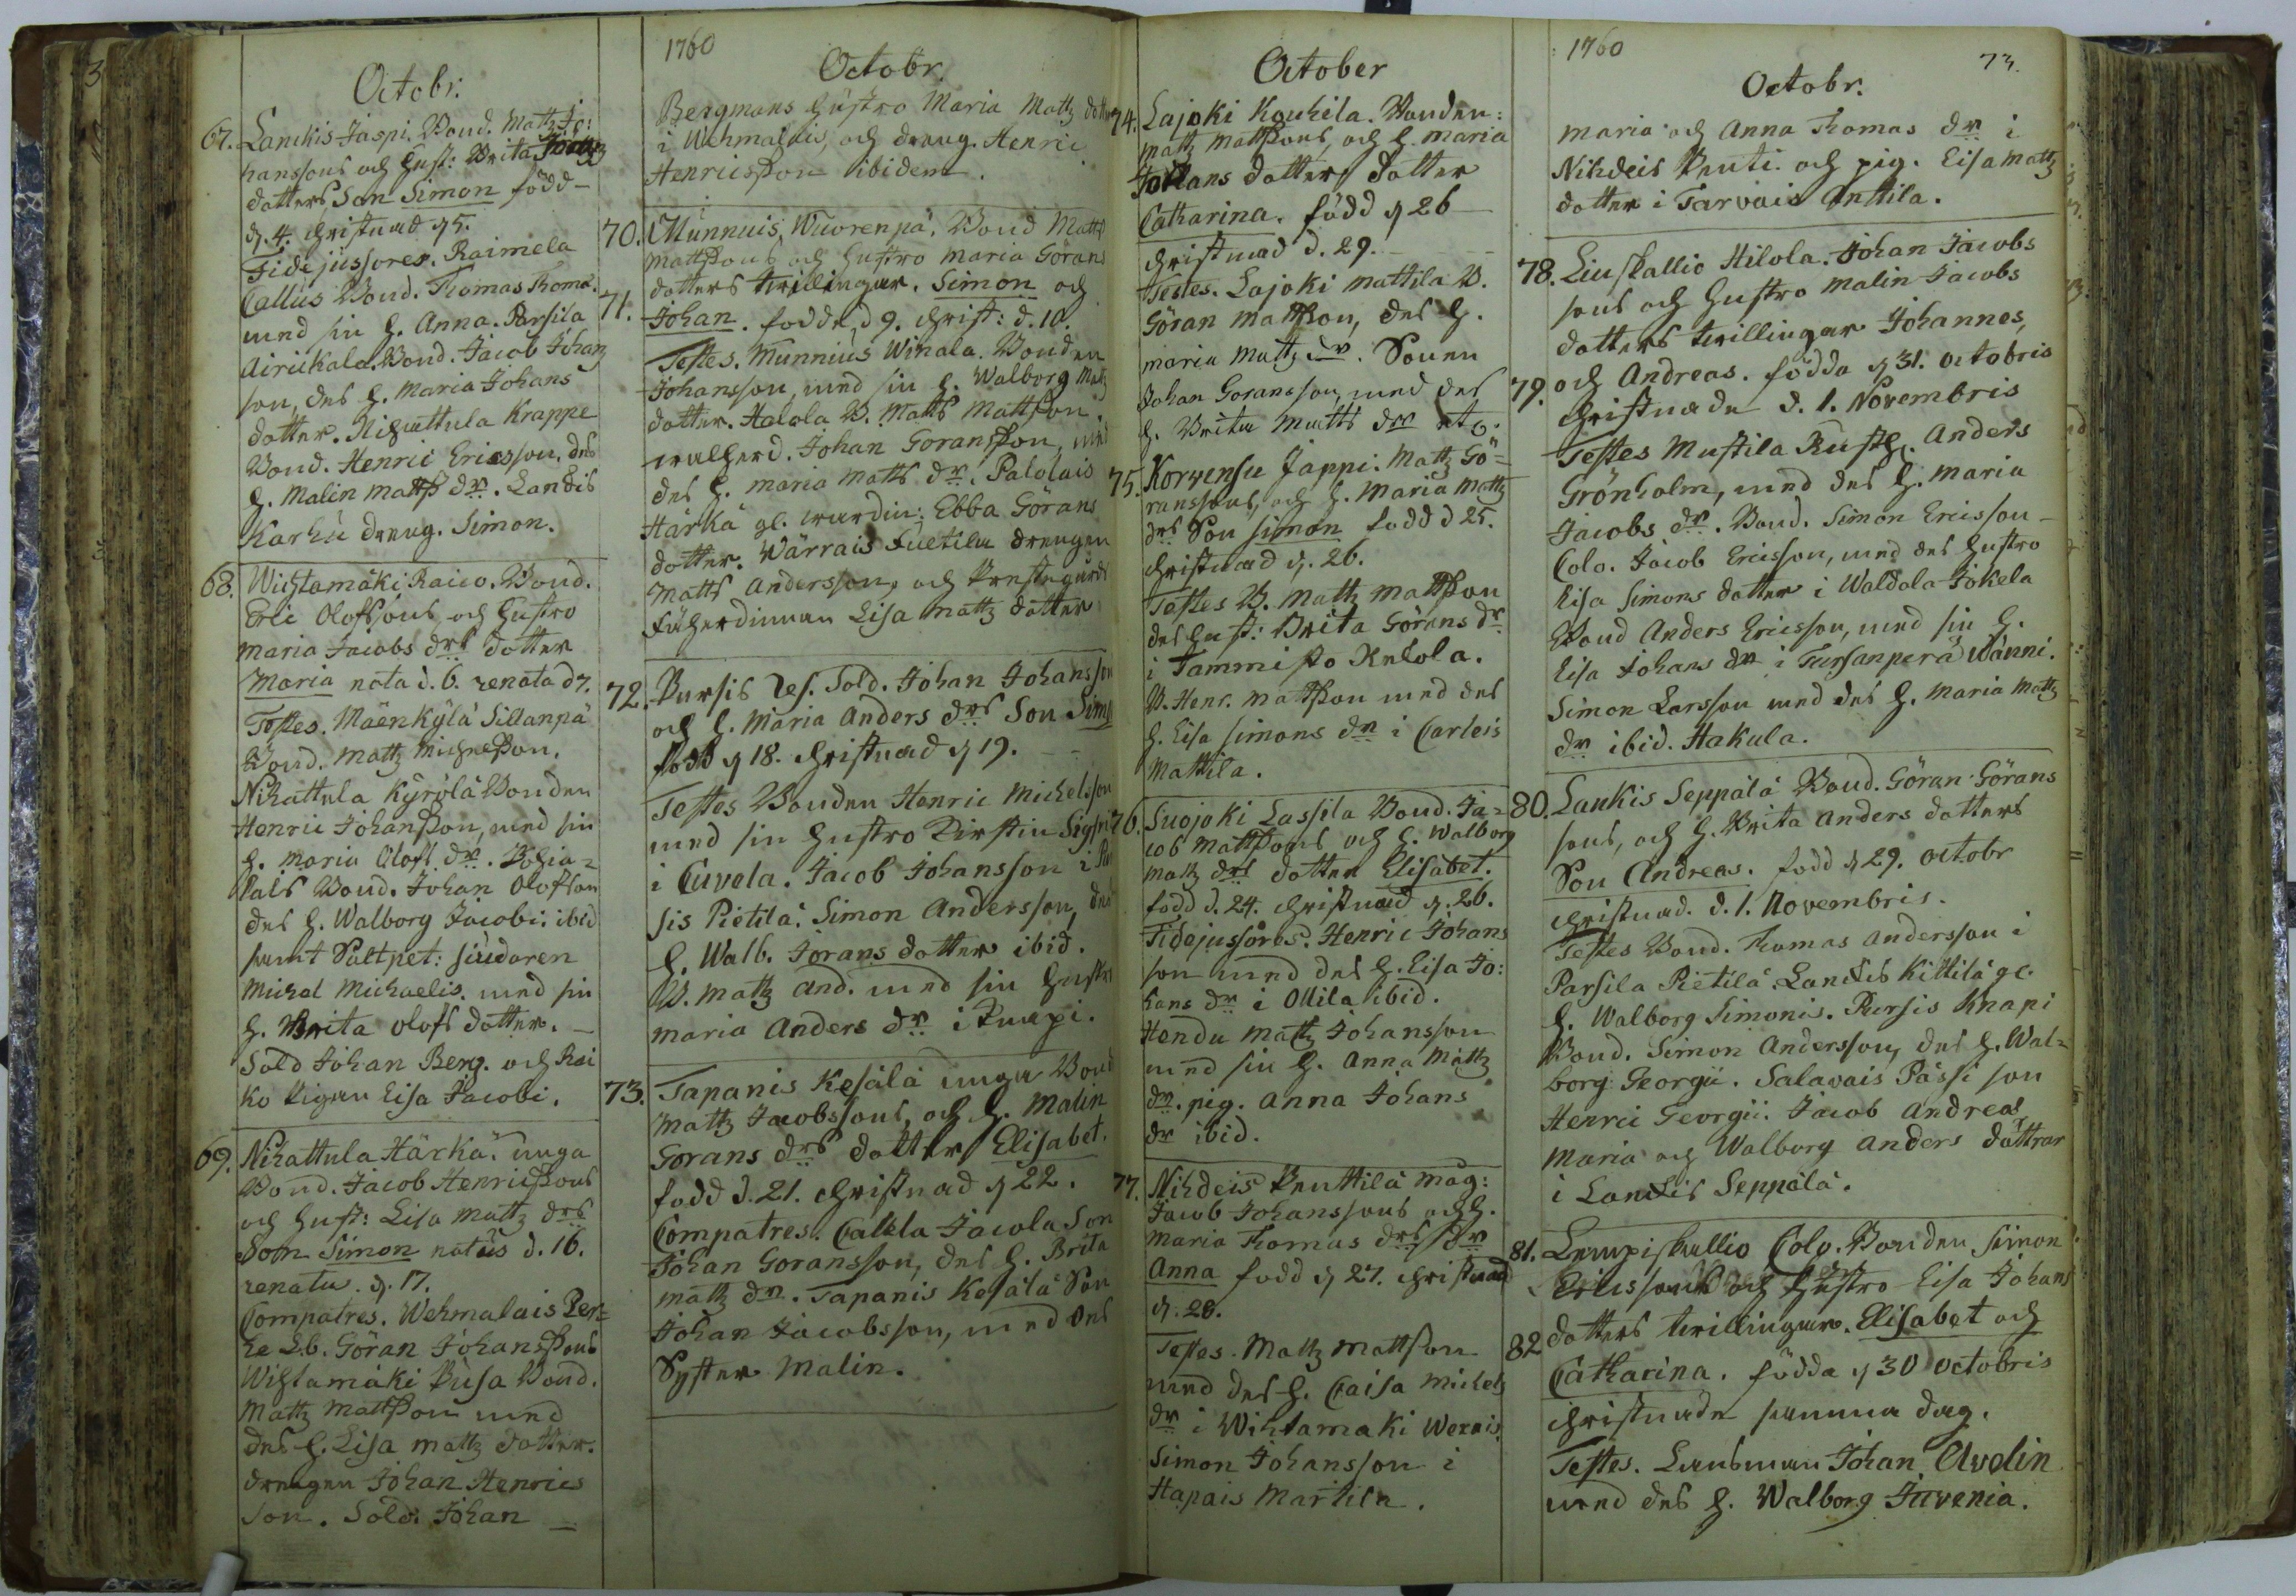 3
Octobr.
67. Lanckis Jaspi. Bond. Mattz Jo:
hanssons och Hust: Brita Jörans
dotters Son Simon född
d. 4. Christnad d 5.
Fidejussores. Raimela
Callus Bond. Thomas Thomæ.
med sin H. Anna. Parsila
Airikala. Bond. Jacob Johans
son, des H. Maria Johans
dotter. Nihattula Krappe
Bond. Henric Ericsson, des
H. Malin Matts dr. Landis
Karhu dreng. Simon.
68. Wihtamäki Raico. Bond.
Eric Olofssons och Hustro
Maria Jacobs drs dotter
Maria nata d. 6. renata d 7.
Testes. Mäenkylä Sillanpä
Bond. Mattz Michelsson.
Nihattula Kyrölä Bonden
Henric Johansson, med sin
H. Maria Olofs dr. Pohia-
Bond. Johan Olofson
des H. Walborg Jacobi ibid
samt Saltpet: siudaren
Michel Michaelis. med sin
H. Brita Olofs dotter.
Sold Johan Berg. och Rai
ko Pigan Lisa Jacobi.
69. Nihattula Härkä unga
Bond. Jacob Henricssons
och Hust: Lisa Mattz drs
Son Simon natus d. 16.
renatu. d. 17.
Compatres. Wehmalais Per-
he Göran Johanssons
Wihtamäki Pusa Bond.
Mattz Mattsson med
des H. Lisa Mattz dotter.
drengen Johan Henrics
son. Sold. Johan
1760
Octobr.
Bergmans Hustro Maria Mattz dotter
i Wehmalais, och dreng. Henric
Henricsson ibidem.
70. Munnuis Wuorenpä. Bond Matts
Mattssons och Hustro Maria Görans
dotters tvillingar. Simon och
71. Johan. födde d 9. Christ: d. 10.
Testes. Munnuis Winala. Bonden
Johansson, med sin H. Walborg Mattz
dotter. Halola B. Matts Mattsson.
Johan Goransson, med
des H. Maria Matts dr. Palolais
Härkä gl. wärdin: Ebba Görans
dotter. Wärrais drengen
Matts Andersson, och Prestegårds
Lisa Mattz dotter
72. Pursis Res. Sold. Johan Johansson
och H. Maria Anders drs Son Simon
född d 18. Christnad d 19.
Testes Bonden Henric Michelsson
med sin Hustro Kirstin
i Cuvola. Jacob Johansson i Pur
sis Pietilä. Simon Andersson, des
H. Walb. Jorans dotter ibid.
B. Mattz And. med sin Hustro
Maria Anders dr i Knapi.
73. Tapanis Kesälä unga Bond
Mattz Jacobssons, och H. Malin
Gorans drs dotter Elisabet.
född d. 21. Christnad d 22.
Compatres. Calela Jacola Son
Johan Goransson, des H. Brita
Mattz dr. Tapanis Kesälä Son
Johan Jacobsson, med des
Syster Malin.
October
74. Lajoki Kouhila. Bonden:
Mattz Mattssons, och H. Maria
dotters dotter
Catharina. född d 26
Christnad d. 29.
Testes. Lajoki Mattila B.
Göran Mattsson, des H.
Maria Mattz dr. Sonen
Johan Goransson, med des
H. Brita Matts dr etc.
75. Korvensu Jappi. Mattz Gö-
ranssons, och H. Maria Mattz
drs Son Simon född d 25.
Christnad d. 26.
Testes B. Mattz Mattsson
des Hust: Brita Görans dr
i Tammisto Ketola.
B. Henr. Mattsson med des
H. Lisa Simons dr i Carleis
Mattila.
76. Suojoki Lassila Bond. Ja-
cob Mattssons, och H. Walborg
Mattz drs dotter Elisabet.
född d. 24. Christnad d. 26.
Fidejussores. Henric Johans
son med des H. Lisa Jo:
hans dr i Ollila ibid.
Hondu Mattz Johansson
med sin H. Anna Mattz
dr. pig. Anna Johans
dr ibid.
77. Nihdeis Penttilä Mag:
Jacob Johanssons och H.
Maria Thomas drs dr
Anna född d 27. Christnad
d. 28.
Testes. Mattz Mattsson
med des H. Caisa Michels
dr i Wihtamäki Wernis
Simon Johansson i
Hapais Martila.
1760
73.
Octobr.
Maria och Anna Thomas dr i
Nihdeis Penti. och pig. Lisa Mattz
dotter i Tarvais Anttila.
78. Liuskallio Hilola. Johan Jacobs
sons och Hustro Malin Jacobs
dotters tvillingar Johannes,
79. och Andreas. födda d 31. Octobris
Christnade d. 1. Novembris
Testes Mustila Rusth. Anders
Grönholm, med des H. Maria
Jacobs dr. Bond. Simon Ericsson
Colo. Jacob Ericsson, med des Hustro
Lisa Simons dotter i Waldola Jokela
Bond Anders Ericsson, med sin H.
Lisa Johans dr i Tursanperä Wänni.
Simon Larsson med des H. Maria Mattz
dr ibid. Hakula.
80. Lankis Seppälä Bond. Göran Görans
sons, och H. Brita Anders dotters
Son Andreas. född d 29. Octobr
Christnad. d. 1. Novembris.
Testes Bond. Thomas Andersson i
Parsila Pietilä. Landis Kittilä gl.
H. Walborg Simonis. Pursis Knapi
Bond. Simon Andersson, des H. Wal-
borg Georgii. Salavais Pässi son
Henric Georgii. Jacob Andreæ
Maria och Walborg Anders döttrar
i Landis Seppälä.
81. Lempiskallio Colo. Bonden Simon
Ericssons och Hustro Lisa Johans
82 dotters tvillingar. Elisabet och
Catharina. födda d 30 Octobris
Christnade samma dag.
Testes. Länsman Johan Avelin
med des H. Walborg Juvenia.